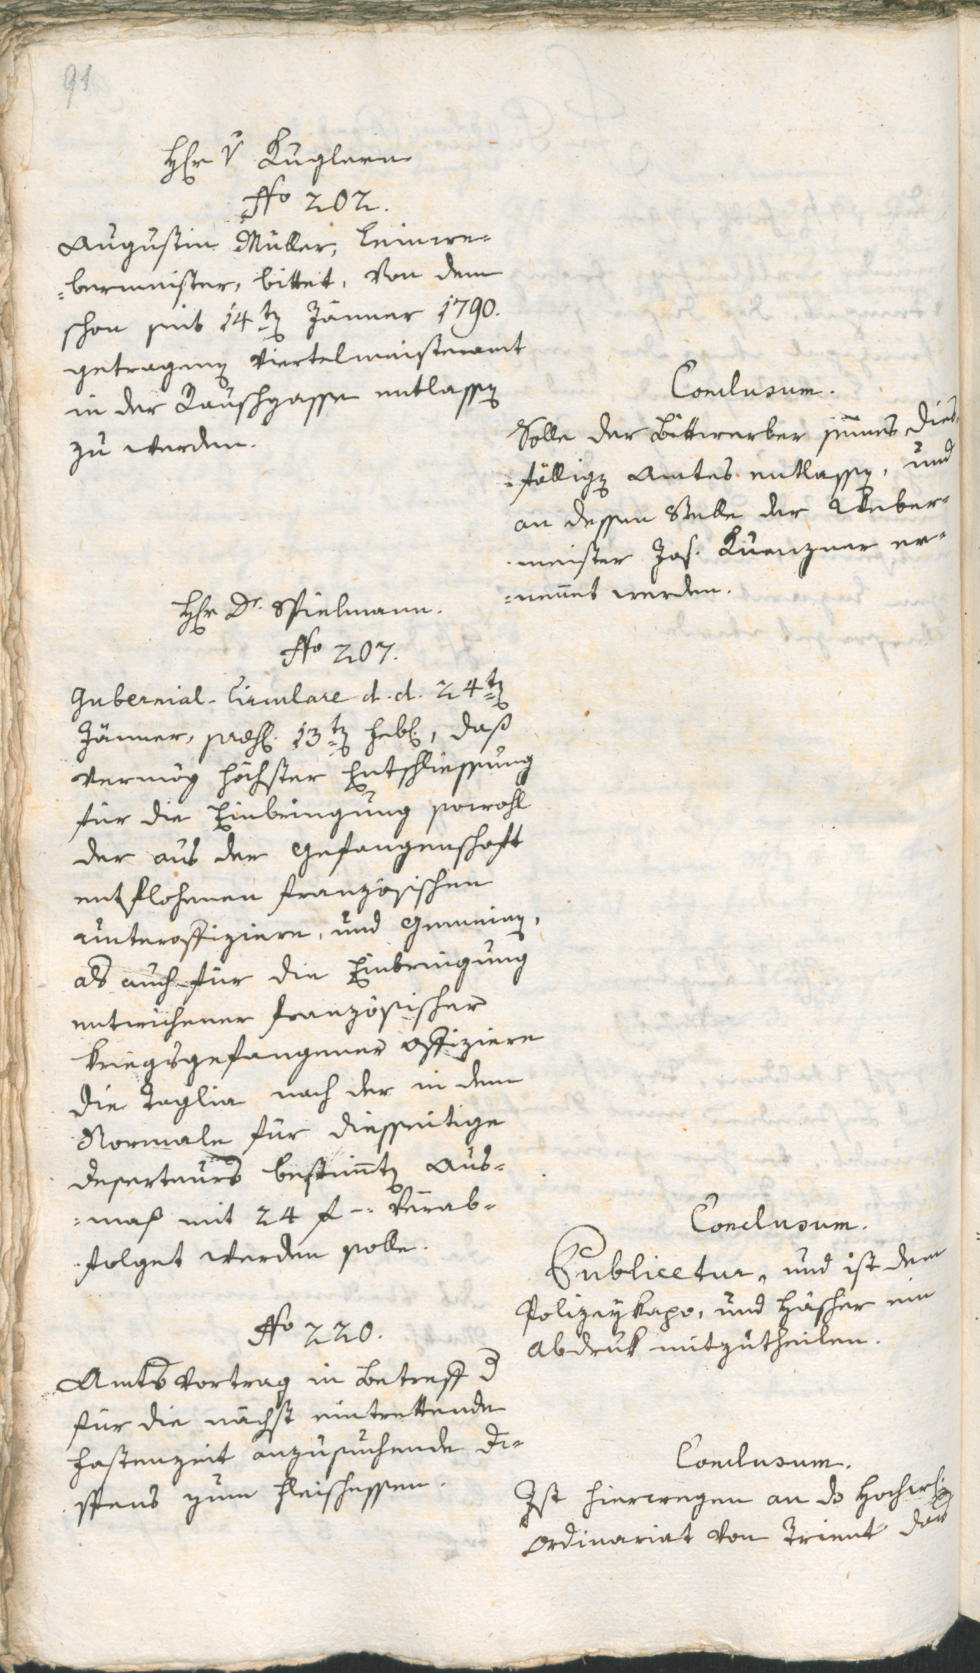 91
Hr v Kuglern
No 202.
Augustin Müller, Leinwe-
=bermeister, bittet, von dem
schon seit 14ten Jänner 1790.
getragenen Viertelmeisteramt
in der Rauschgasse entlassen
zu werden.
Conclusum.
Solle der Bittwerber seines dies-
=fälligen Amtes entlassen, und
an dessen Stelle der Weber-
meister Jos. Kuenzner er-
=nennet werden.
Hr Dr. Spielmann.
No 207.
Gubernial-Circulare d. d. 24ten
Jänner, praes. 13ten Feb., daß
vermög höchster Entschliessung
für die Einbringung sowohl
der aus der Gefangenschaft
entflohenen französischen
Unteroffiziere, und Gemeinen,
als auch für die Einbringung
entwichener französischer
kriegsgefangener Offiziere
die Taglia nach der in dem
Normale für diesseitige
Deserteurs bestimmten Aus-
=maß mit 24 f -- verab-
folget werden solle.
Conclusum.
Publicetur, und ist dem
Polizeykapo, und Häscher ein
Abdruk mitzutheilen.
No 220.
Amts Vortrag in Betreff d
für die nächst eintrettende
Fastenzeit anzusuchende Di-
spens zum Fleischessen.
Conclusum.
Ist hierwegen an ds Hochw.
Ordinariat von Trient das